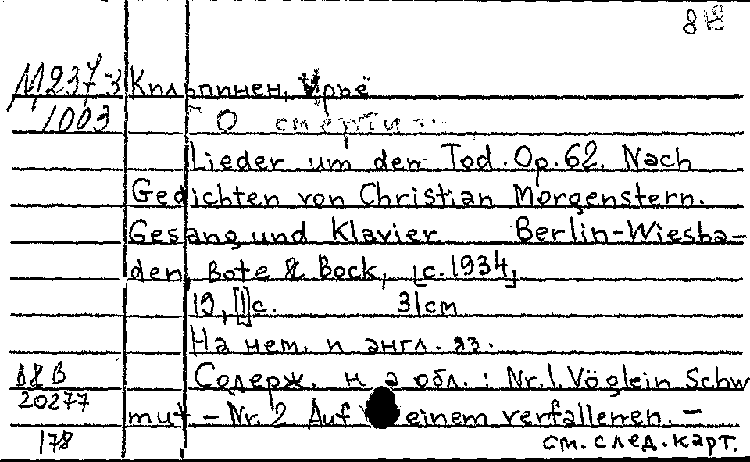 М237-3 Кильпинен, Ирьё
1003 [О смерти
Lieder um den Tod. Op. 62. Nach
Gedichten von Christian Morgenstern.
Gesang und Klavier Berlin-Wiesba-
den, Bote & Bock, [c. 1934]
19, [1]с. 31cm
На нем. и англ. яз.
Содерж. на обл.: Nr. 1. Vöglein Schw
20277 mut – Nr. 2 Auf einem verfallenen. –
178 см. след. карт.